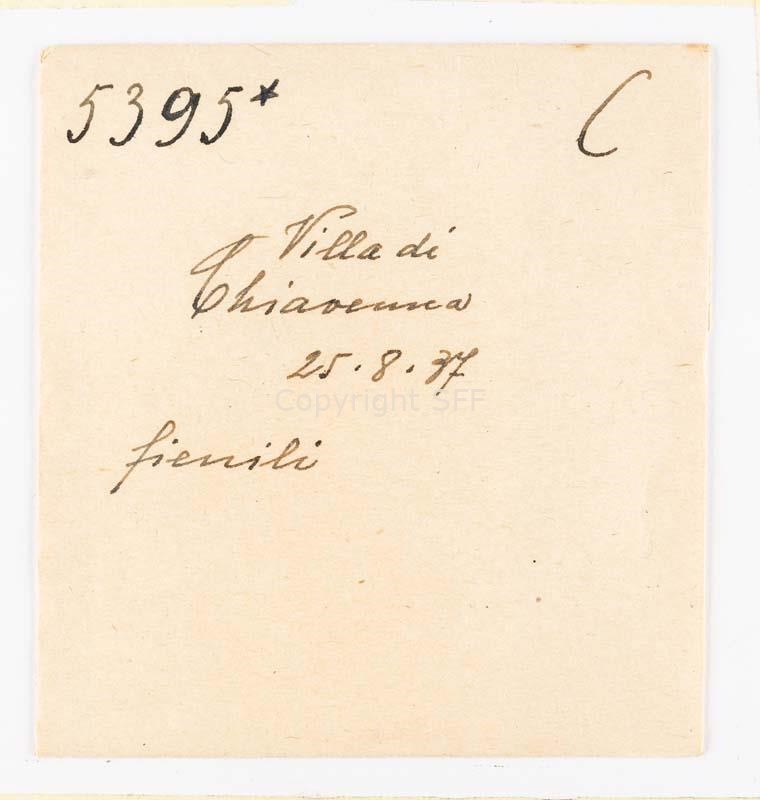 5395* C
Villa di
Chiavenna
25.8.37
Copyright SFF
fienili